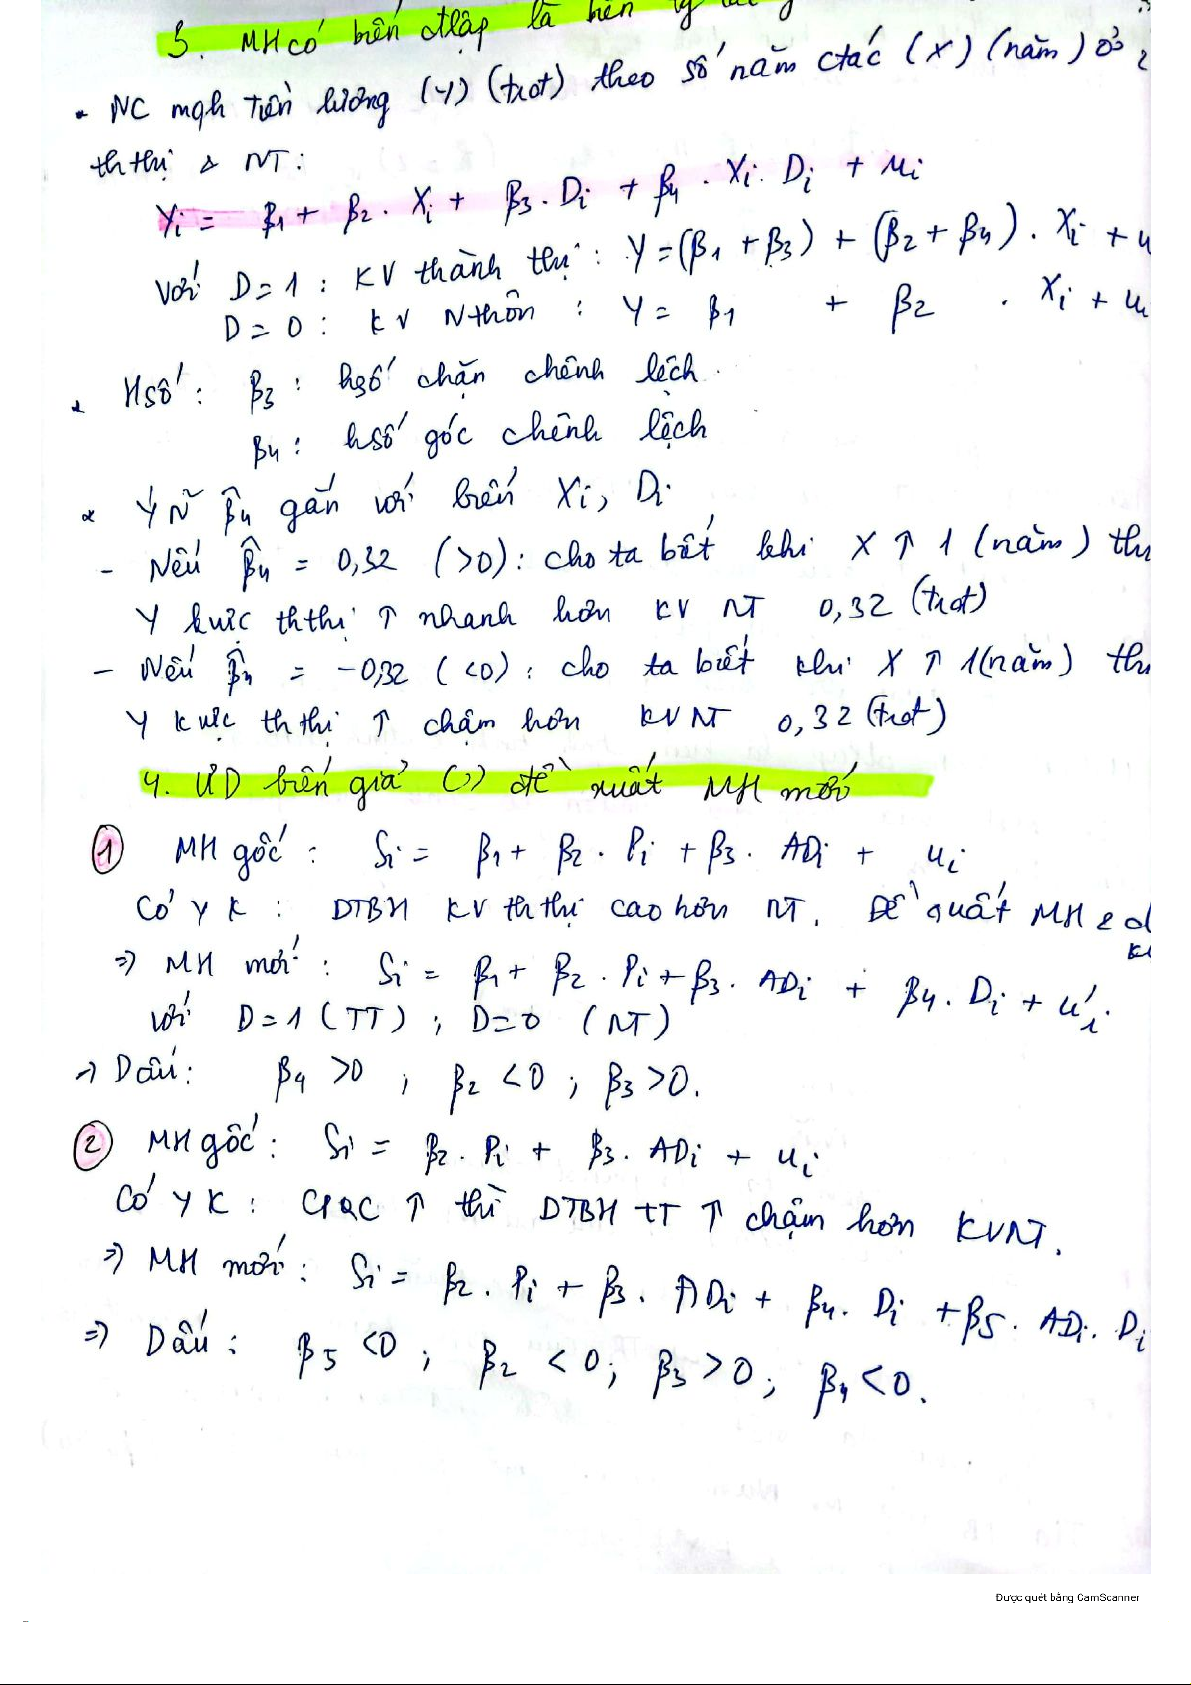 3. MH có biến đlập là biến
- NC mqh Tiền lương (Y) (trđt) theo số năm ctác (X) (năm) ở 2
th thị & NT:
Yi = β1 + β2 . Xi + β3 . Di + β4 . Xi . Di + ui
Với D = 1 : KV thành thị : Y = (β1 + β3) + (β2 + β4) . Xi + u
D = 0 : KV Nthôn : Y = β1 + β2 . Xi + u
* Hsố : β3 : hsố chặn chênh lệch .
β4 : hsố góc chênh lệch
* Ý N̄ β̂4 gắn với biến Xi, Di
- Nếu β̂4 = 0,32 (>0) : cho ta biết khi X ↑ 1 (năm) th
Y kvực th thị ↑ nhanh hơn KV NT 0,32 (trđt)
- Nếu β̂4 = -0,32 (<0) : cho ta biết khi X ↑ 1 (năm) th
Y kvực th thị ↑ chậm hơn KV NT 0,32 (trđt)
4. ƯD biến giả () đề xuất MH mới
① MH gốc : Si = β1 + β2 . Pi + β3 . ADi + ui
Có YK : DTBH KV th thị cao hơn NT. Đề quất MH
⇒ MH mới : Si = β1 + β2 . Pi + β3 . ADi + β4 . Di + u'i .
với D = 1 (TT) ; D = 0 (NT)
⇒ Dấu : β4 > 0 ; β2 < 0 ; β3 > 0.
② MH gốc : Si = β2 . Pi + β3 . ADi + ui
Có YK : CPQC ↑ thì DTBH TT ↑ chậm hơn KVNT.
⇒ MH mới : Si = β2 . Pi + β3 . ADi + β4 . Di + β5 . ADi . Di
⇒ Dấu : β5 < 0 ; β2 < 0 ; β3 > 0 ; β4 < 0 .
Được quét bằng CamScanner